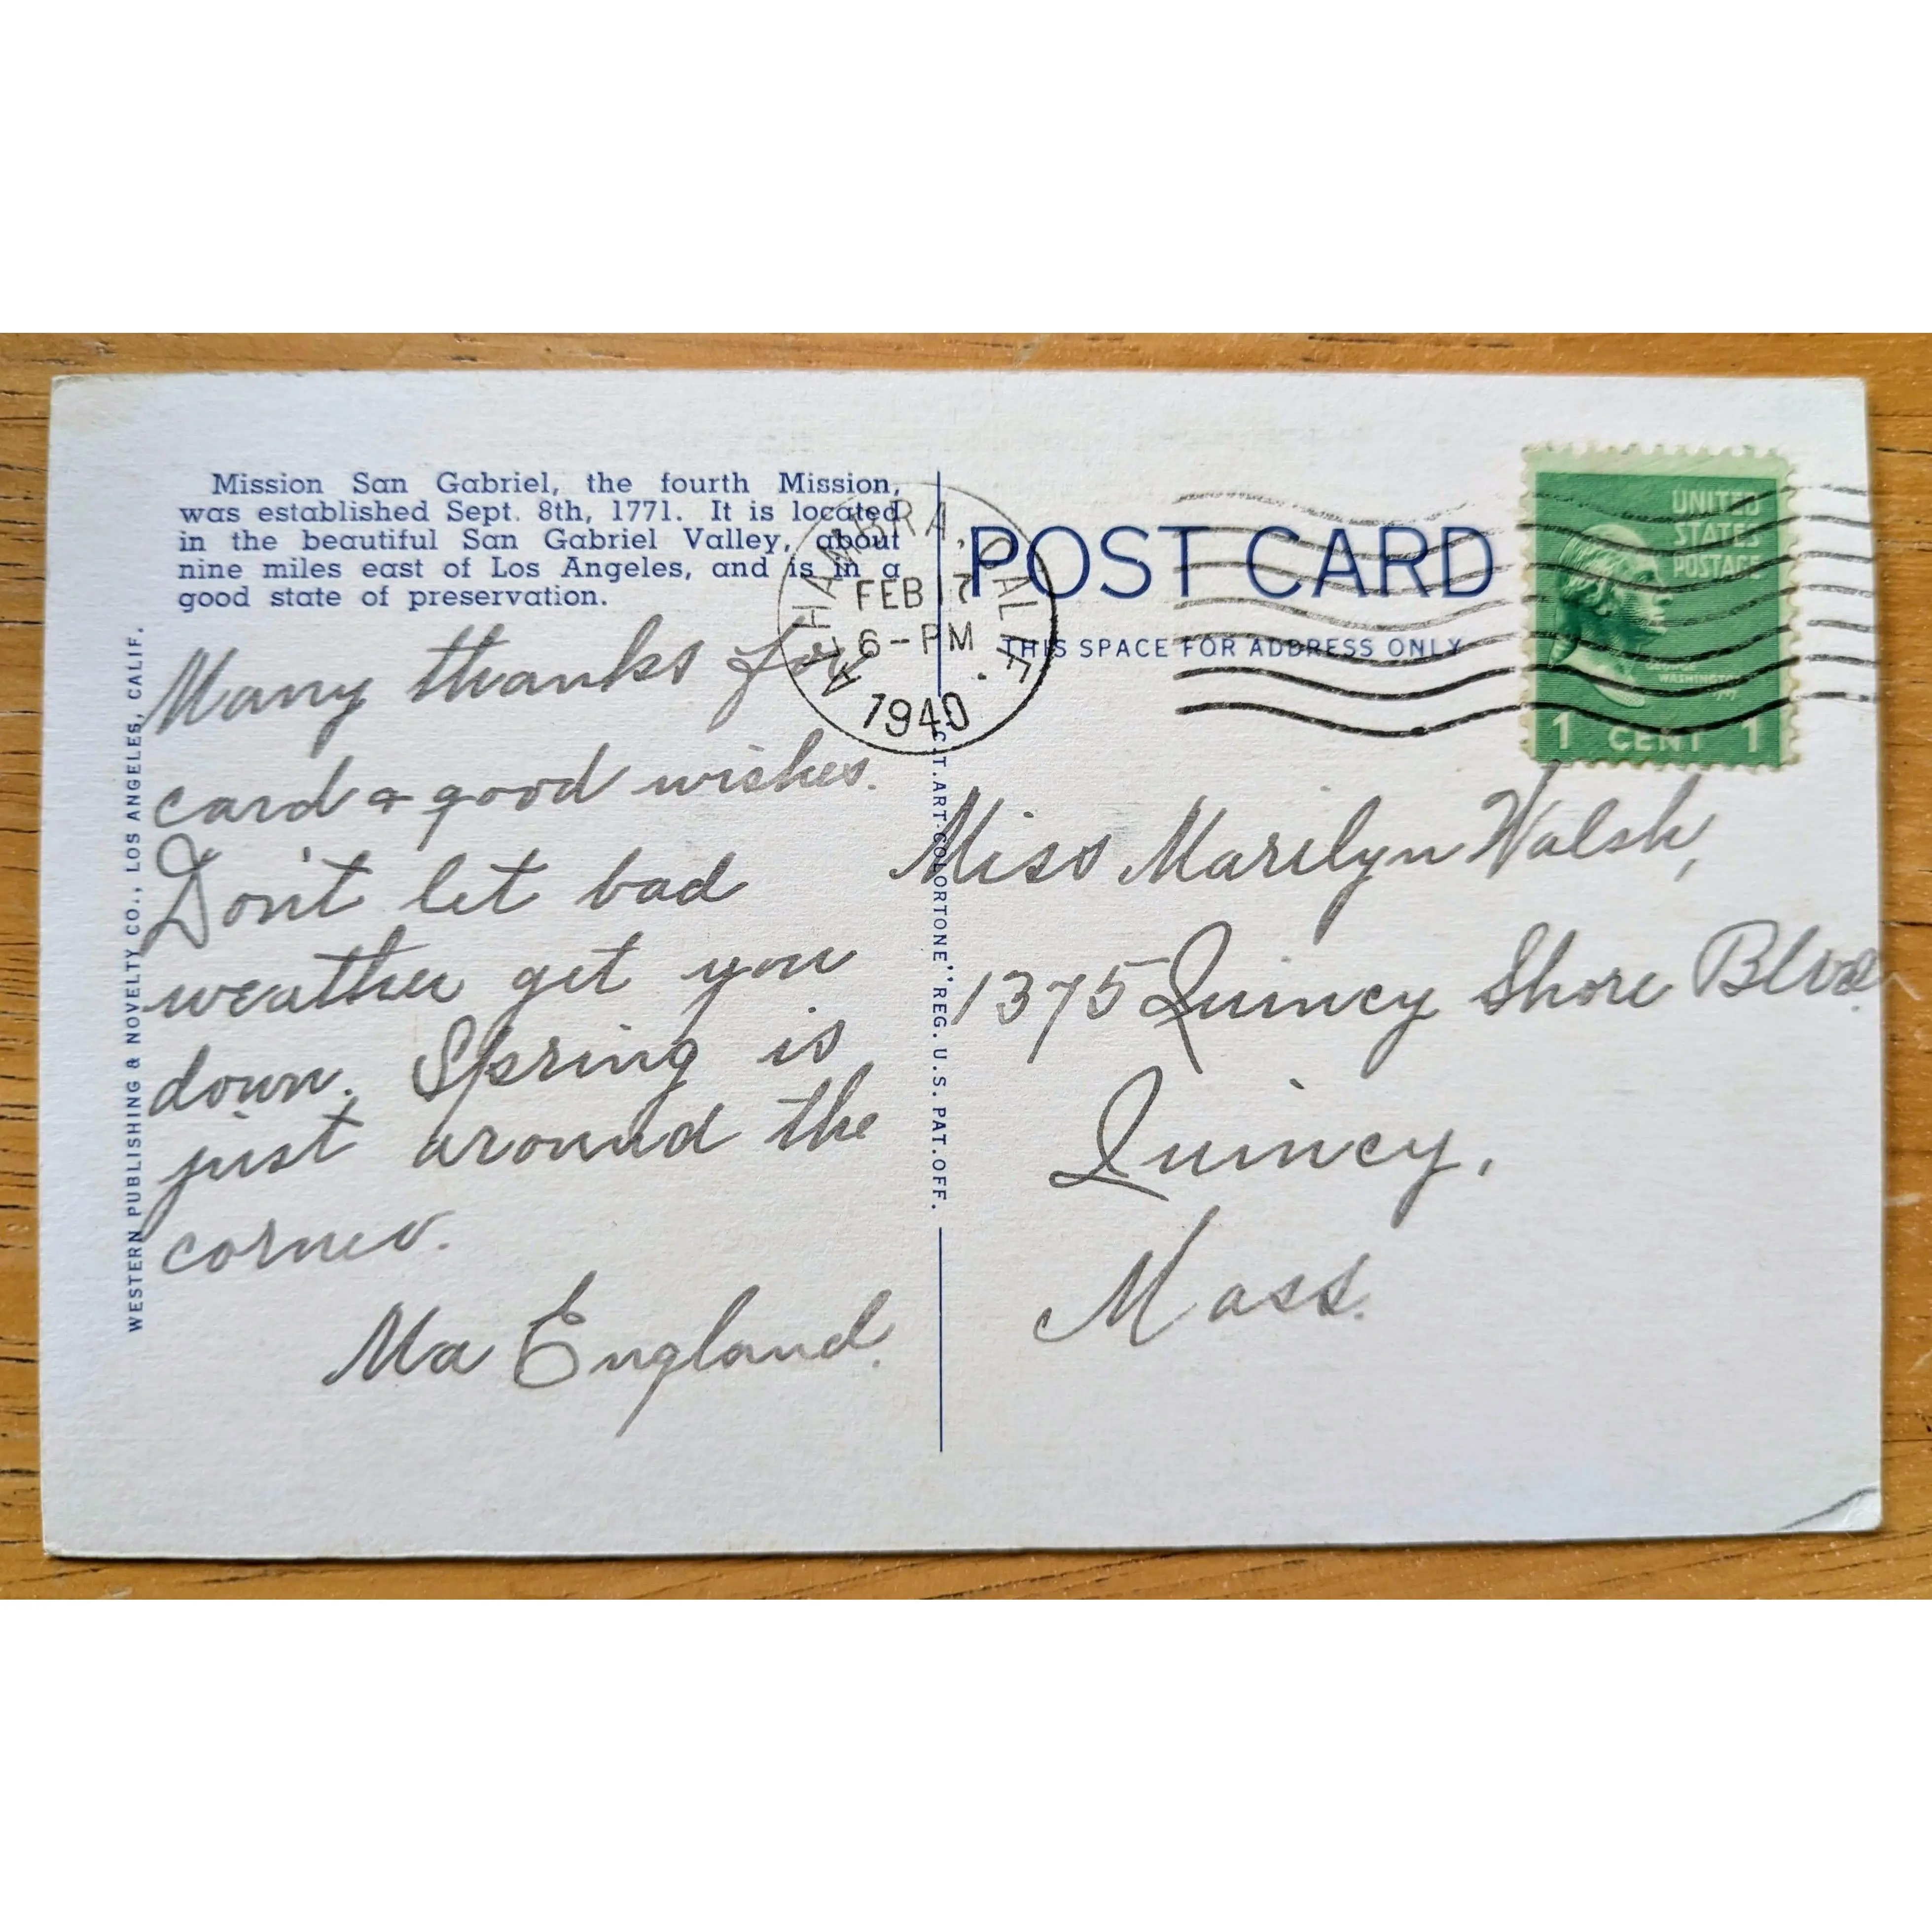 Mission San Gabriel, the fourth Mission,
was established Sept. 8th, 1771. It is located
in the beautiful San Gabriel Valley, about
nine miles east of Los Angeles, and is in a
good state of preservation.
Many thanks for
card & good wishes.
Don't let bad
weather get you
down. Spring is
just around the
corner.
Ma England.
WESTERN PUBLISHING & NOVELTY CO., LOS ANGELES, CALIF.
ALHAMBRA, CALIF.
FEB 17
6-PM
1940
C.T. ART-COLORTONE" REG. U.S. PAT. OFF.
POST CARD
THIS SPACE FOR ADDRESS ONLY
UNITED
STATES
POSTAGE
GEORGE
WASHINGTON
1 CENT 1
Miss Marilyn Walsh,
1375 Quincy Shore Blvd.
Quincy,
Mass.